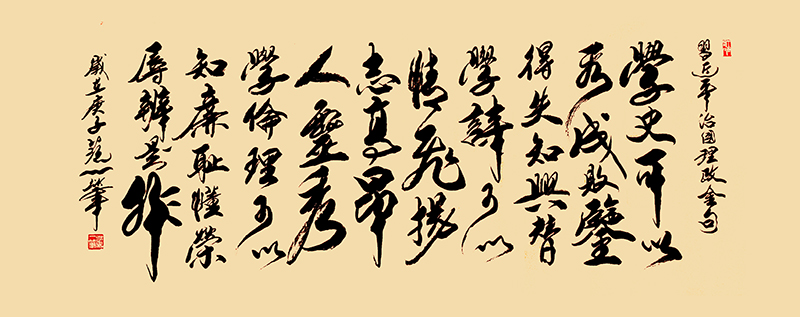 習近平治國理政金句
學史可以
看成敗鑒
得失知興替
學詩可以
情飛揚
志高昂
人靈秀
學倫理可以
知廉恥懂榮
辱辨是非
歲在庚子筆